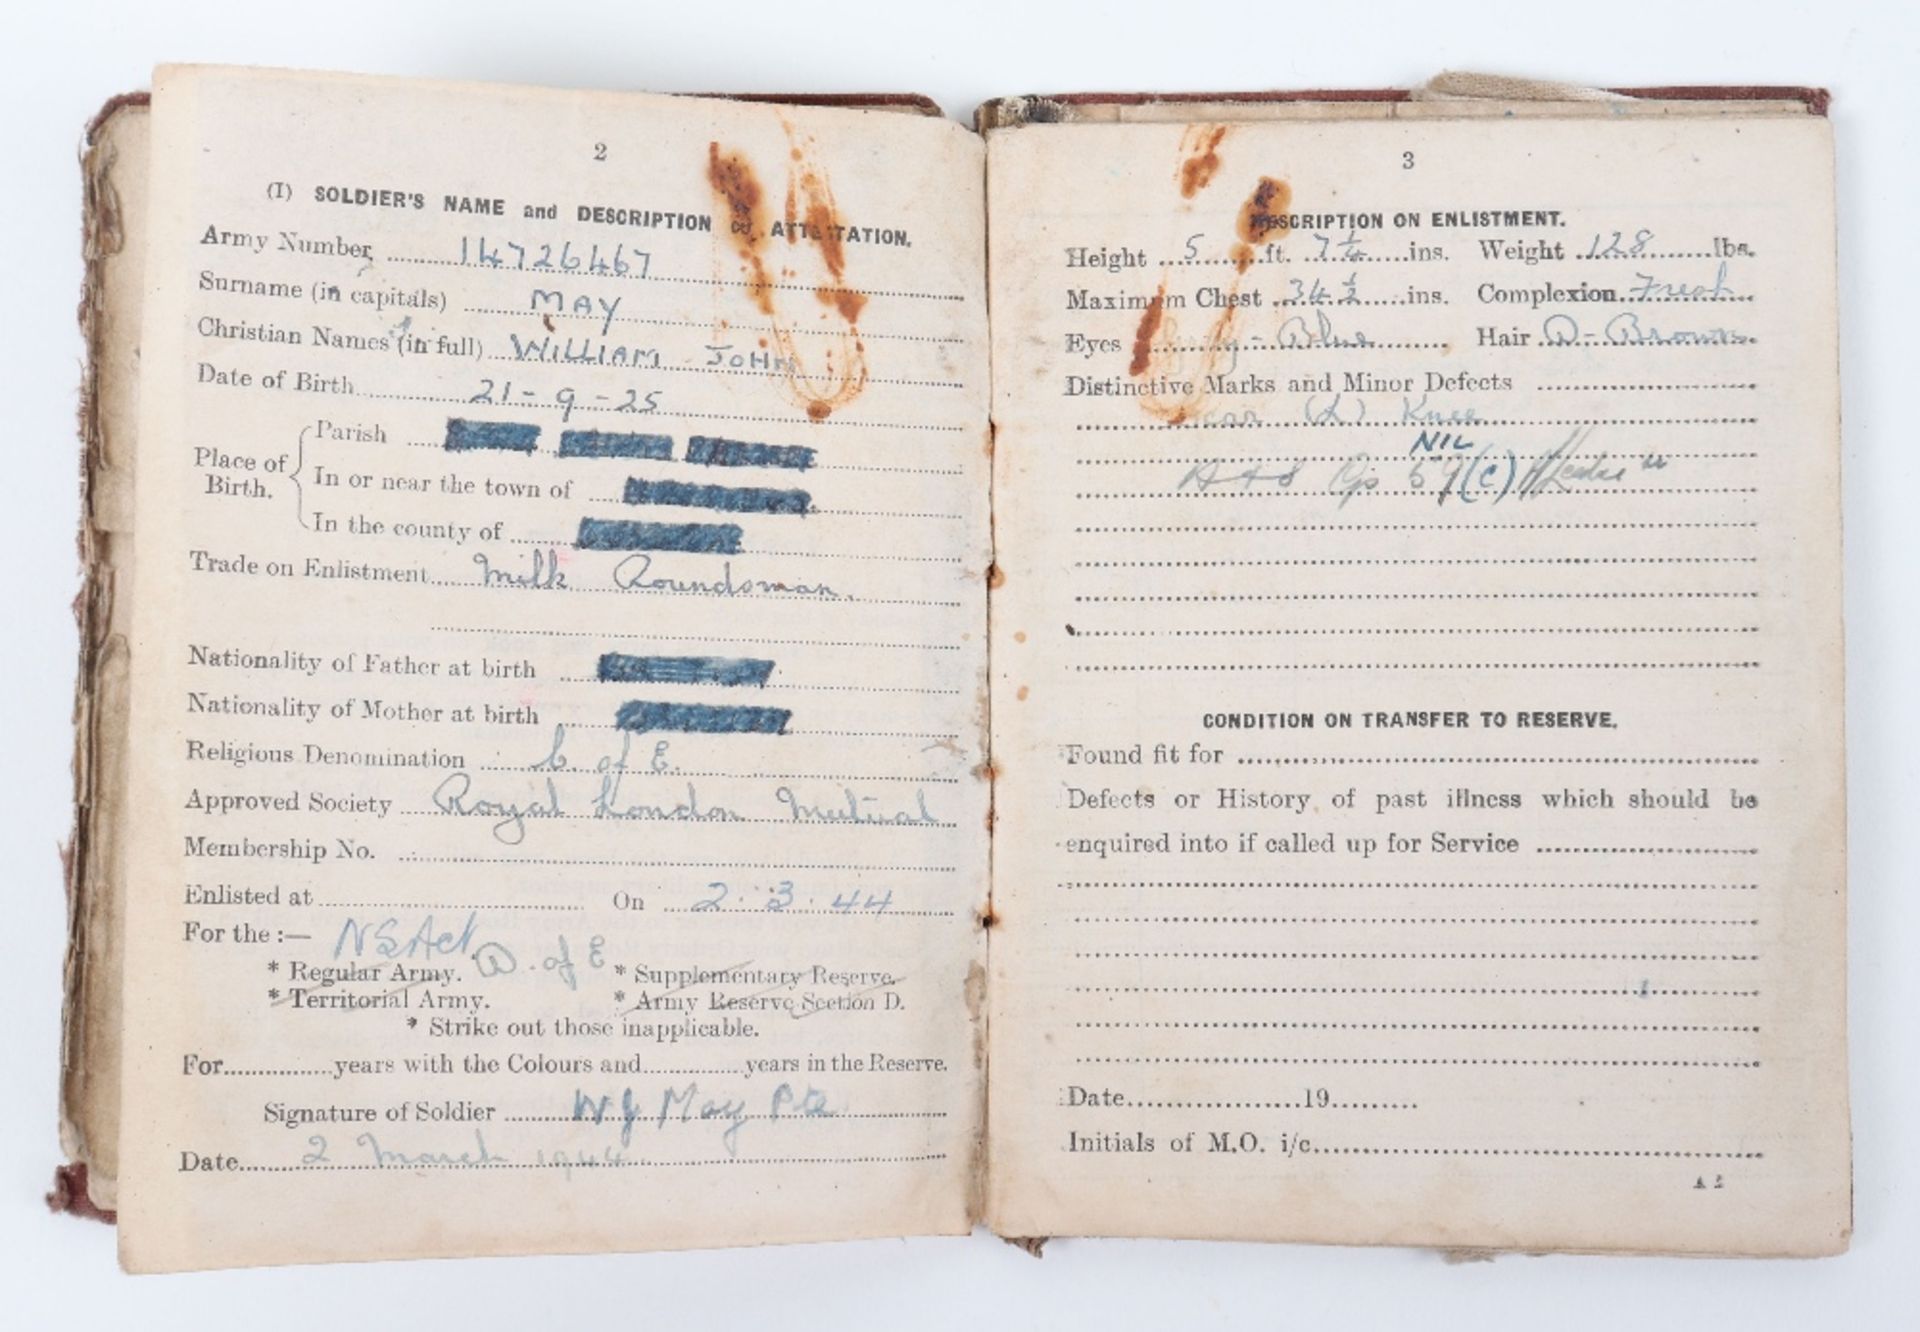 2
(I) SOLDIER'S NAME and DESCRIPTION on ATTESTATION.
Army Number ..... 14726467
Surname (in capitals) ..... MAY
Christian Names (in full) ..... WILLIAM JOHN
Date of Birth ..... 21 - 9 - 25
Place of Birth. Parish .....
In or near the town of .....
In the county of .....
Trade on Enlistment ..... Milk Roundsman.
Nationality of Father at birth .....
Nationality of Mother at birth .....
Religious Denomination ..... C. of E.
Approved Society ..... Royal London Mutual
Membership No. .....
Enlisted at ..... On ..... 2 . 3 . 44
For the :— NS Act.
D. of E
* Regular Army. * Supplementary Reserve.
* Territorial Army. * Army Reserve Section D.
* Strike out those inapplicable.
For ..... years with the Colours and ..... years in the Reserve.
Signature of Soldier ..... W J May Pte
Date ..... 2 March 1944
3
DESCRIPTION ON ENLISTMENT.
Height ... 5 ... ft. ... 7 1/4 ... ins. Weight ... 128 ... lbs.
Maximum Chest ... 34 1/2 ... ins. Complexion ... Fresh
Eyes ... - Blue ... Hair D- Brown
Distinctive Marks and Minor Defects .....
Scar (L) Knee
NIL
59 (c)
CONDITION ON TRANSFER TO RESERVE.
Found fit for .....
Defects or History of past illness which should be
enquired into if called up for Service .....
Date.....19.....
Initials of M.O. i/c.....
A 2